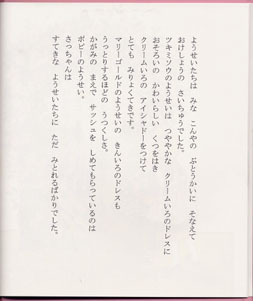 ようせいたちは みな こんやの ぶとうかいに そなえて
おけしょうの さいちゅうでした。
ツキミソウのようせいは つややかな クリームいろのドレスに
おそろいの かわいらしい くつをはき
クリームいろの アイシャドーをつけて
とても みりょくてきです。
マリーゴールドのようせいの きんいろのドレスも
うっとりするほどの うつくしさ。
かがみの まえで サッシュを しめてもらっているのは
ポピーのようせい。
さっちゃんは
すてきな ようせいたちに ただ みとれるばかりでした。